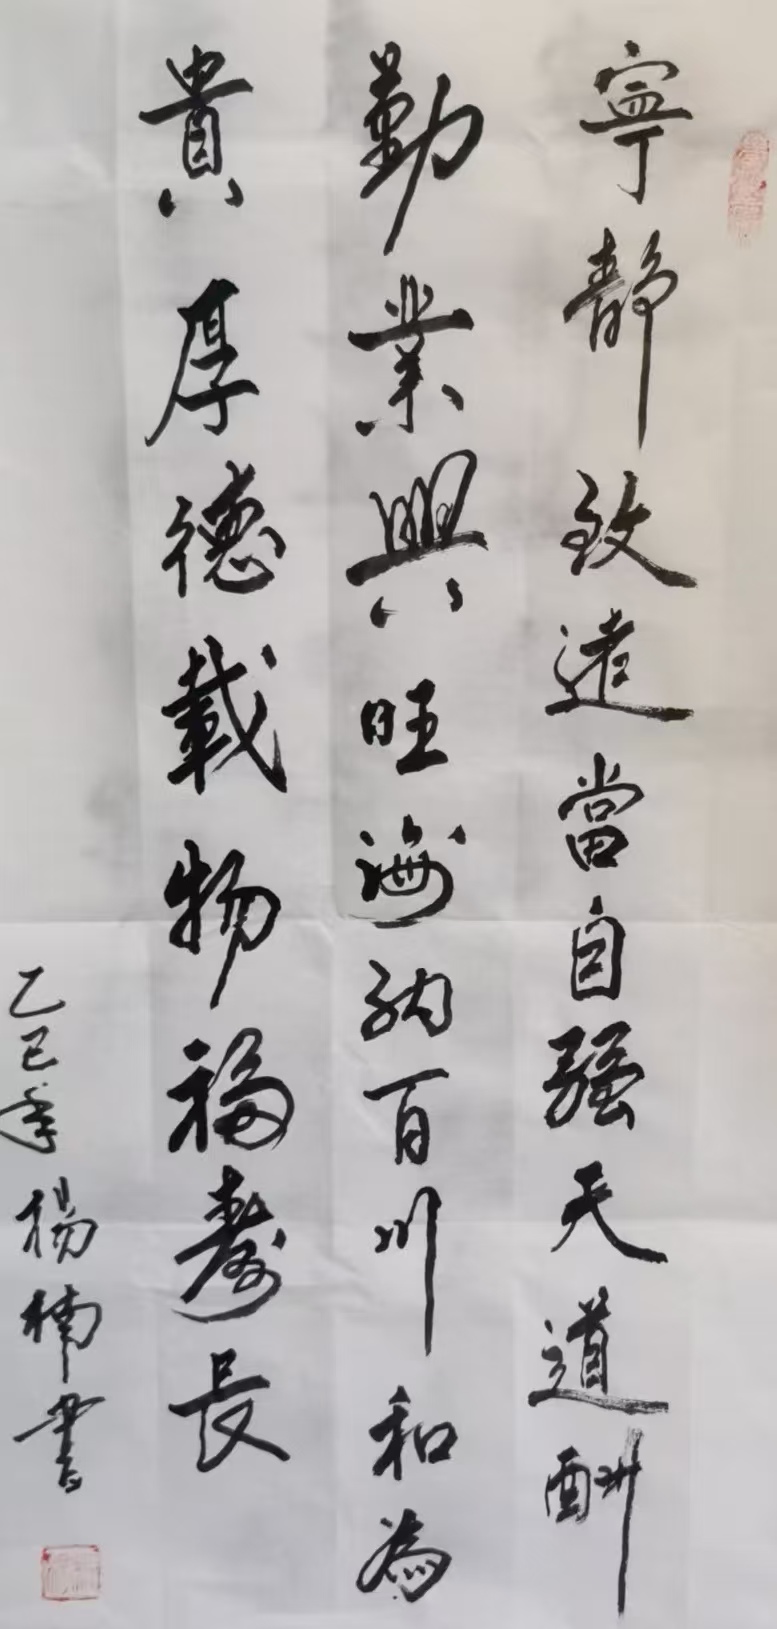 寧靜致遠當自强天道酬
勤業興旺海納百川和為
貴厚德載物福壽長
乙巳年楊楠書